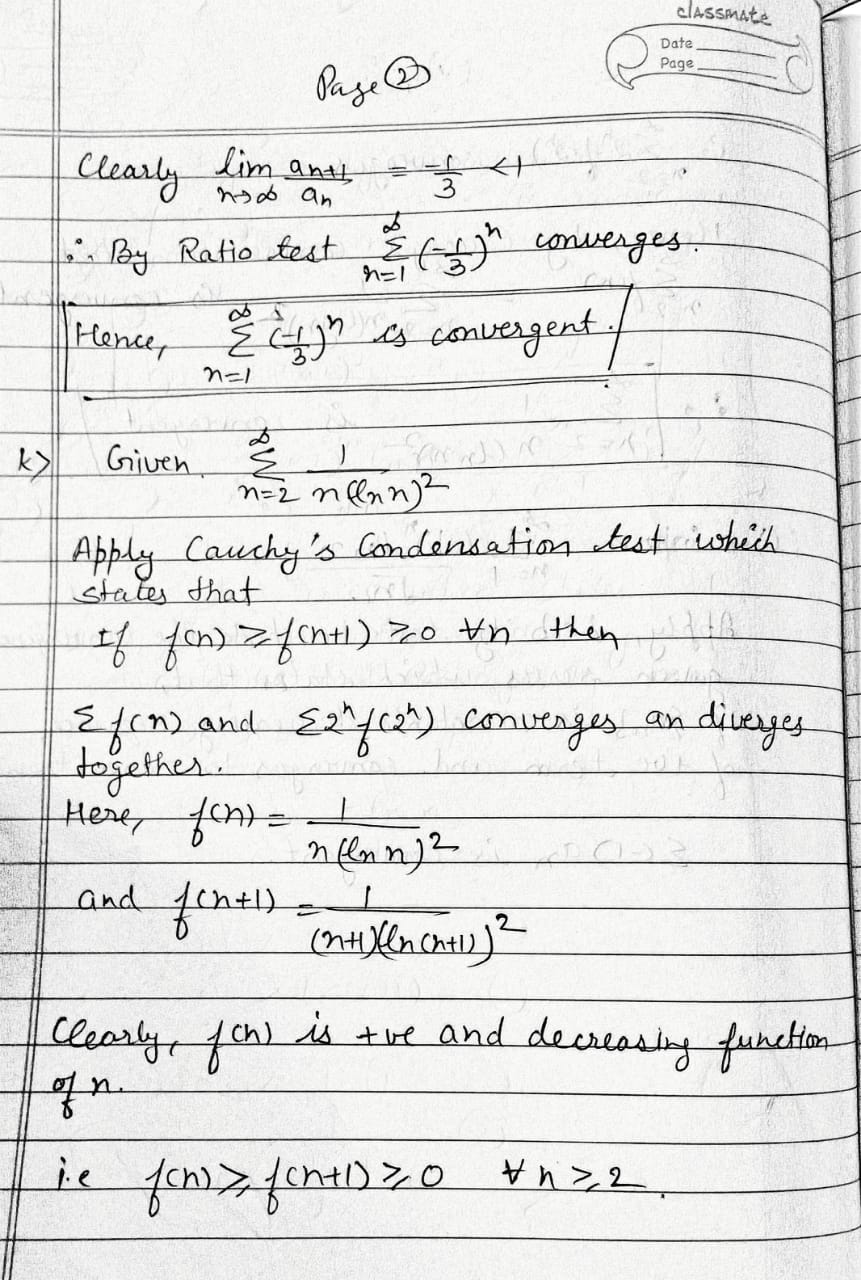 classmate
Date
Page
Page ②
Clearly lim n→∞ an+1/an = 1/3 <1
∴ By Ratio test ∞ Σ n=1 (-1/3)^n converges.
Hence, ∞ Σ n=1 (-1/3)^n is convergent.
k> Given ∞ Σ n=2 1/n(ln n)^2
Apply Cauchy's Condensation test which
states that
If f(n) ≥ f(n+1) ≥0 ∀n then
Σf(n) and Σ2^n f(2^n) converges an diverges
together.
Here, f(n) = 1/n(ln n)^2
and f(n+1) = 1/(n+1)(ln(n+1))^2
Clearly, f(n) is +ve and decreasing function
of n.
i.e f(n) ≥ f(n+1) ≥ 0 ∀ n ≥ 2.